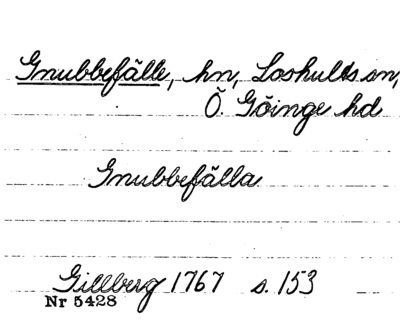 Gnubbefälle, hn, Loshults sn,
Ö. Göinge hd
Gnubbefälla
Gillberg 1767 s. 153
Nr 5428